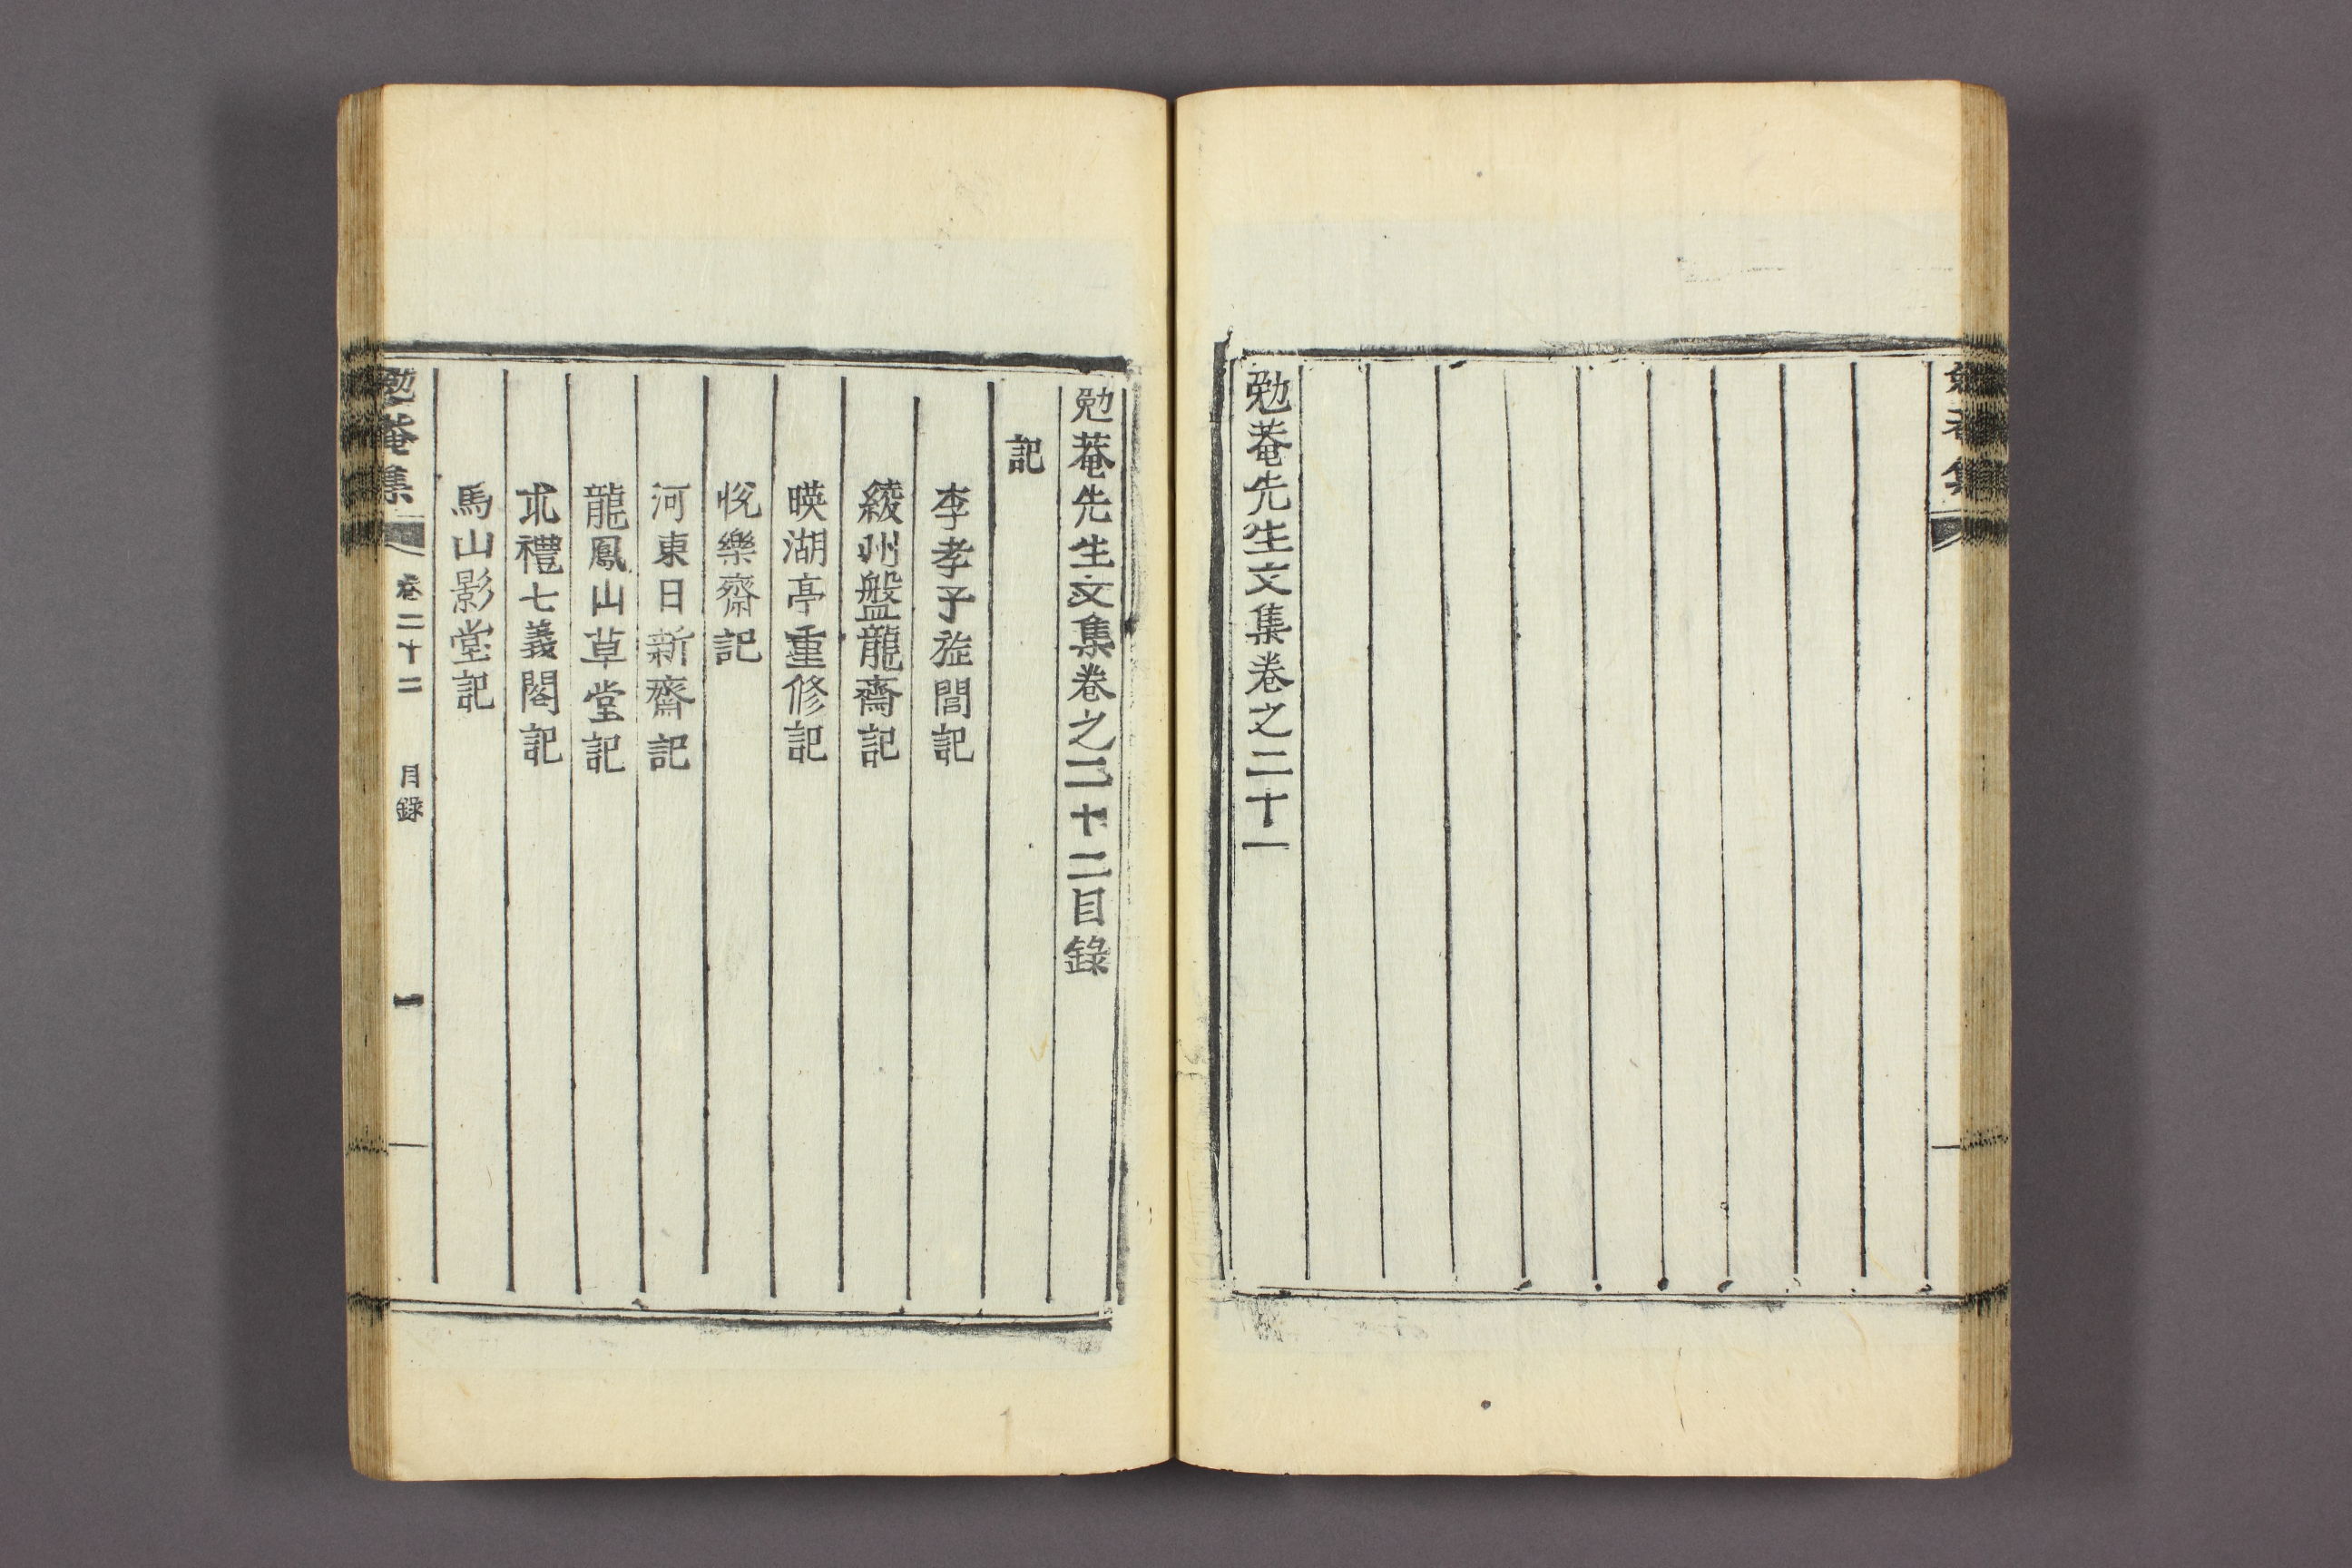 勉菴集
勉菴先生文集卷之二十一
勉菴先生文集卷之二十二目錄
記
李孝子旌閭記
綾州盤龍齋記
暎湖亭重修記
悅樂齋記
河東日新齋記
龍鳳山草堂記
求禮七義閣記
馬山影堂記
勉菴集 卷二十二 目錄 一